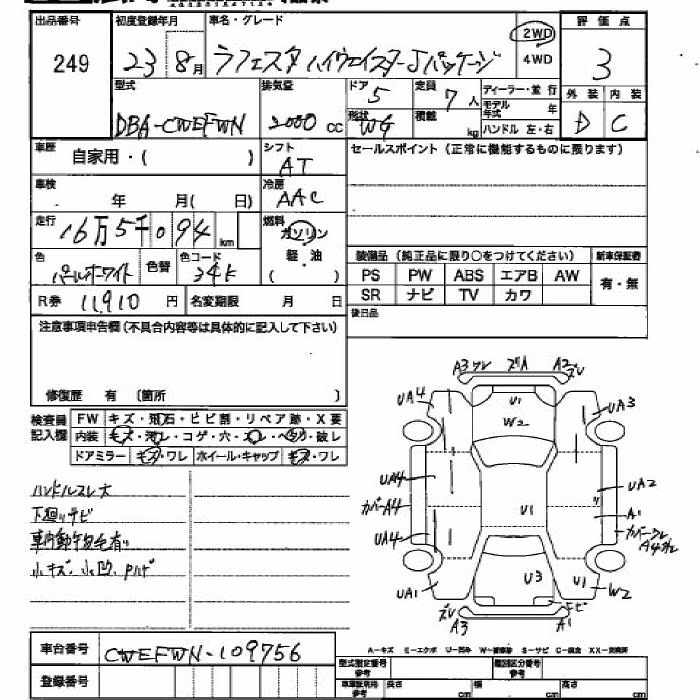 出品番号 初度登録年月 車名・グレード 評価点
249 23 8月 ラフェスタ ハイウェイスターJパッケージ 2WD 4WD 3
型式 排気量 ドア 5 定員 7人 ディーラー・並行 外装 内装
DBA-CWEFWN 2000 cc 形状 WG 積載 kg モデル年式 年 D C
ハンドル 左・右
車歴 自家用・( ) シフト AT セールスポイント (正常に機能するものに限ります)
車検 年 月( 日) 冷房 AAC
走行 16万5千094 km 燃料 ガソリン
軽・油
( )
色 パールホワイト 色替 色コード 34K
装備品 (純正品に限り○をつけてください) 新車保証書
PS PW ABS エアB AW 有・無
SR ナビ TV カワ
R券 11,910 円 名変期限 月 日
後日品
注意事項申告欄(不具合内容等は具体的に記入して下さい)
修復歴 有 〔箇所 〕
検査員記入欄 FW キズ・飛石・ヒビ割・リペア跡・X要
内装 キズ・汚レ・コゲ・穴・スレ・ヘタリ・破レ
ドアミラー キズ・ワレ ホイール・キャップ キズ・ワレ
ハンドルスレ大
下廻りサビ
車内動物毛有り
小キズ、小凹、Pハゲ
A3ワレ ズレA A2ズレ
UA4 U1 UA3
W2
UA4 UA2
カバーA4 U1 A1
UA4 カバーワレ
UA1 U3 U1 W2
ズレ サビ
A3 A1
車台番号 CWEFWN-109756
登録番号
A-キズ E-エクボ U-凹み S-サビ C-腐食 XX-交換済
型式指定番号 参考 類別区分番号 参考
車車証明用 参考 長さ cm 幅 cm 高さ cm